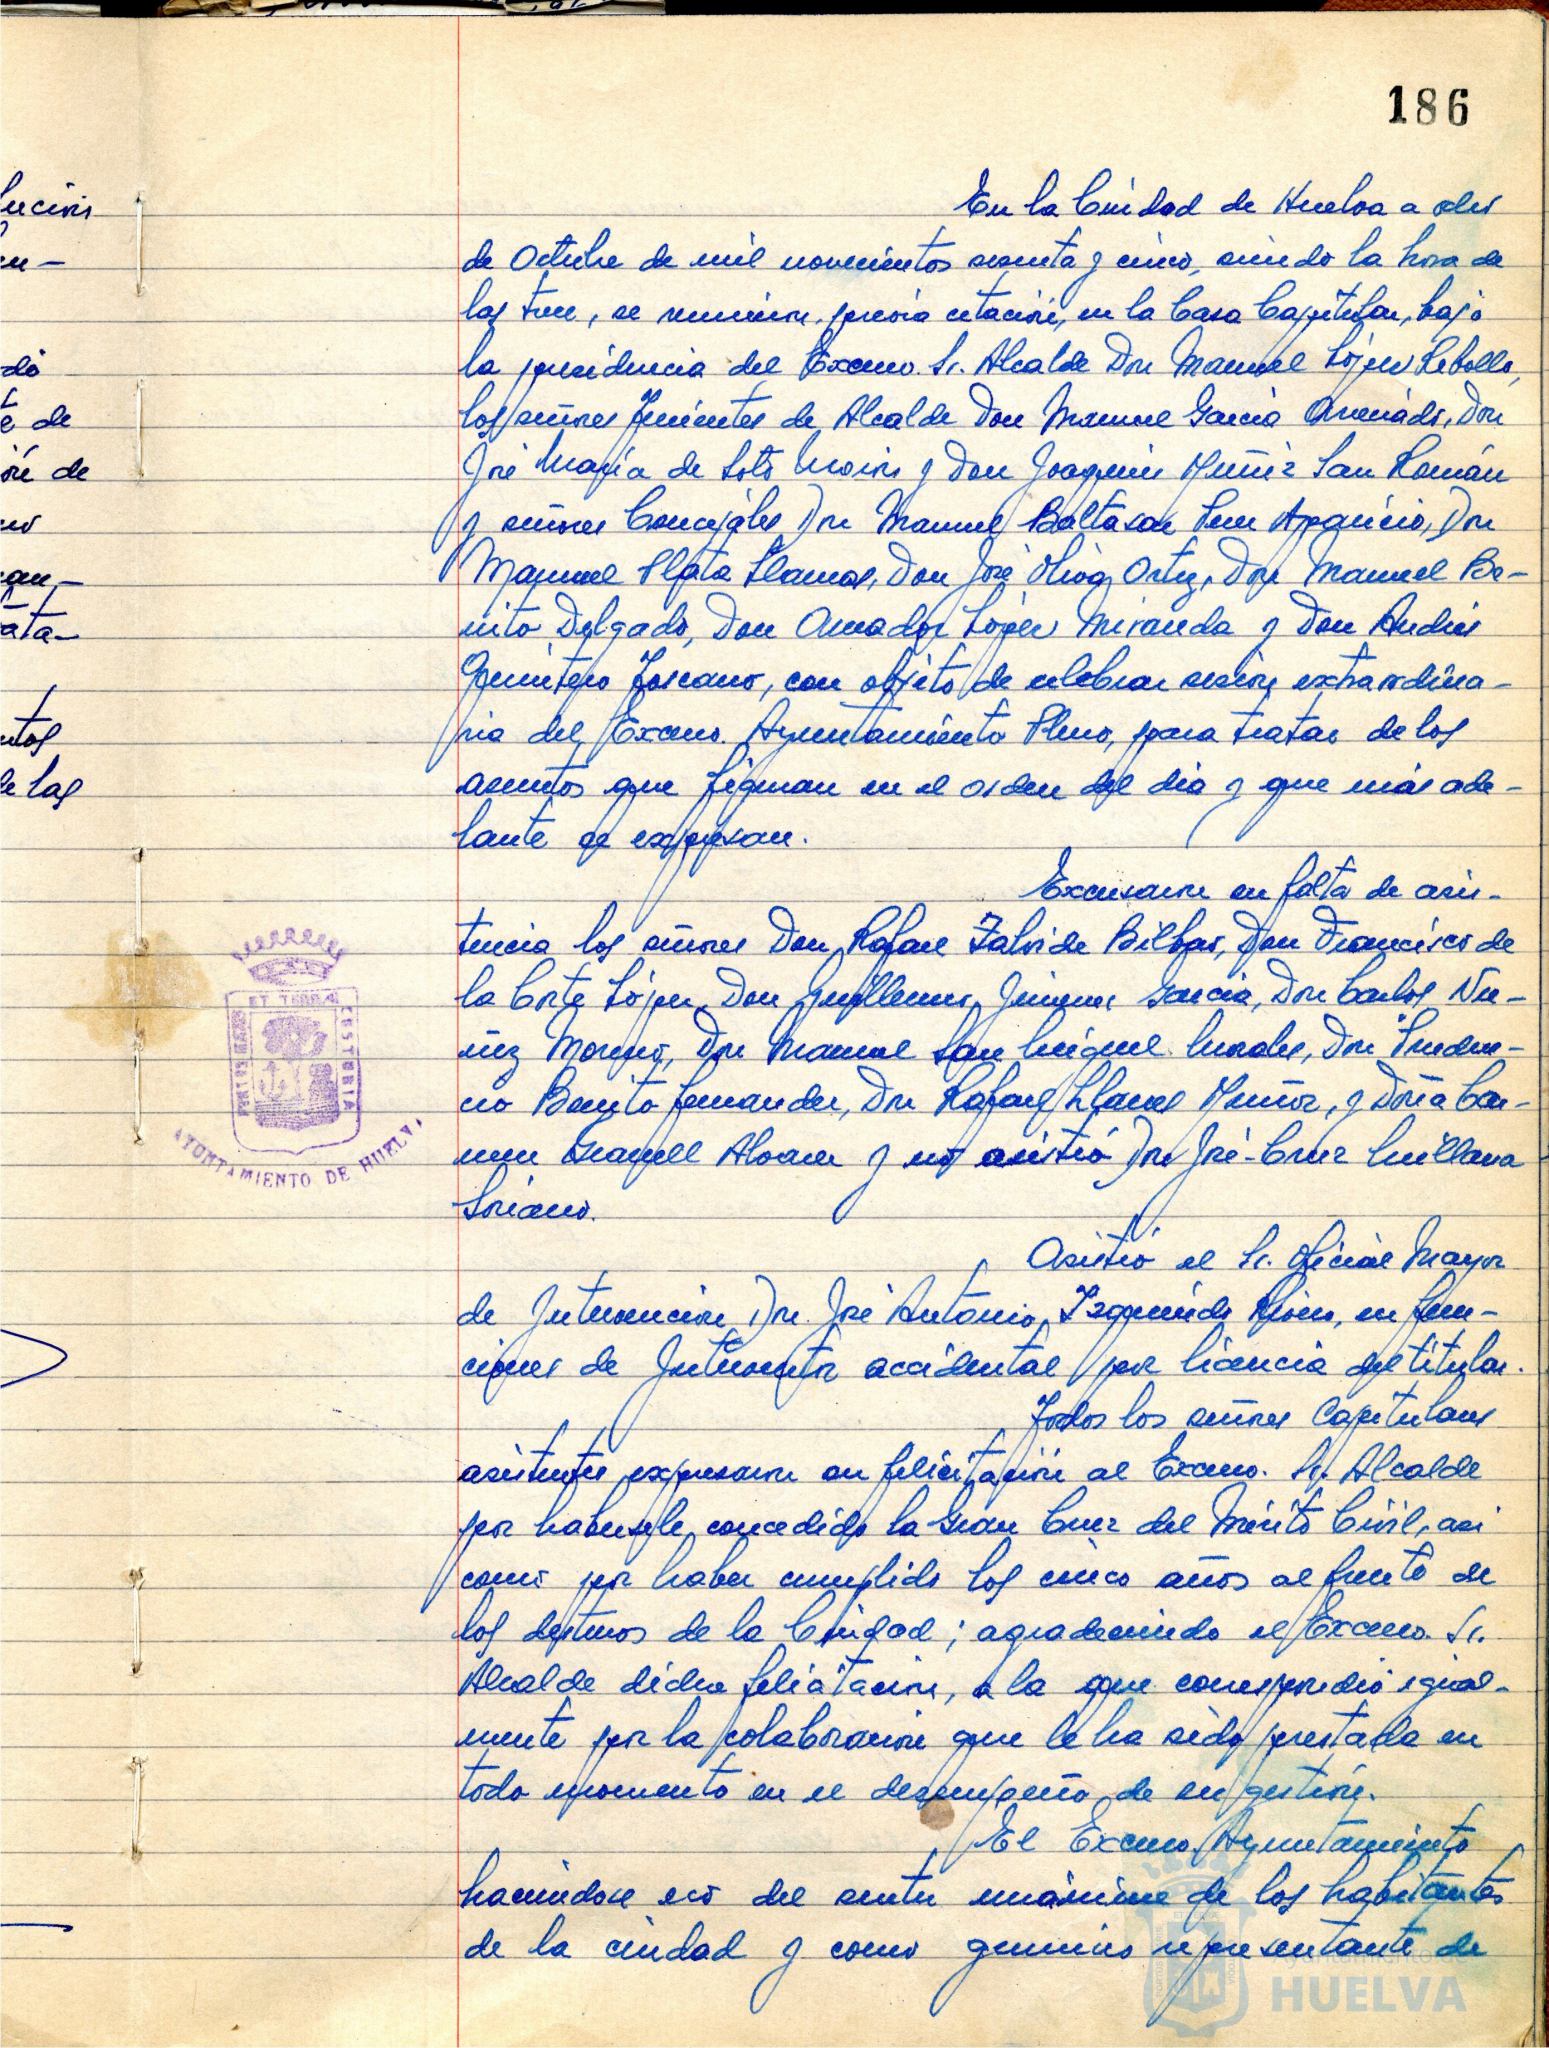 186
En la Ciudad de Huelva a
de Octubre de mil novecientos sesenta y cinco, siendo la hora de
las trece, se reunieron, previa citación, en la Casa Capitular, bajo
la presidencia del Excmo. Sr. Alcalde Don Manuel López Rebollo,
los señores Tenientes de Alcalde Don Manuel García Ameriado, Don
José María de Soto Morón y Don Joaquín Muñiz San Román
y señores Concejales Don Manuel Baltasar Aparicio, Don
Manuel Plata Llamas, Don José Oliva Ortiz, Don Manuel Be-
nito Delgado, Don Amador López Miranda y Don Andrés
Quintero Toscano, con objeto de celebrar sesión extraordina-
ria del Excmo. Ayuntamiento Pleno, para tratar de los
asuntos que figuran en el orden del día y que más ade-
lante se expresan.
Excusaron su falta de asis-
tencia los señores Don Rafael Zalvide Bilbao, Don Francisco de
la Corte López, Don Guillermo Jimenez García, Don Carlos Nu-
ñez Moreno, Don Manuel San Miguel Morales, Don Pruden-
cio Benito Fernandez, Don Rafael Llanes Muñoz, y Doña Car-
men Granell Alvarez y no asistió Don José-Cruz Quillana
Soriano.
Asistió el Sr. Oficial Mayor
de Intervención Don José Antonio Izquierdo en fun-
ciones de Interventor accidental por licencia del titular.
Todos los señores Capitulares
asistentes expresaron su felicitación al Excmo. Sr. Alcalde
por habersele concedido la Gran Cruz del Mérito Civil, asi
como por haber cumplido los cinco años al frente de
los destinos de la Ciudad; agradeciendo el Excmo. Sr.
Alcalde dicha felicitación, a la que correspondió igual-
mente por la colaboración que le ha sido prestada en
todo momento en el desempeño de su gestión.
El Excmo. Ayuntamiento
haciendose eco del sentir unánime de los habitantes
de la ciudad y como genuino representante de
PORTUS MARIS ET TERRAE CUSTODIA
AYUNTAMIENTO DE HUELVA
Ayuntamiento de
HUELVA